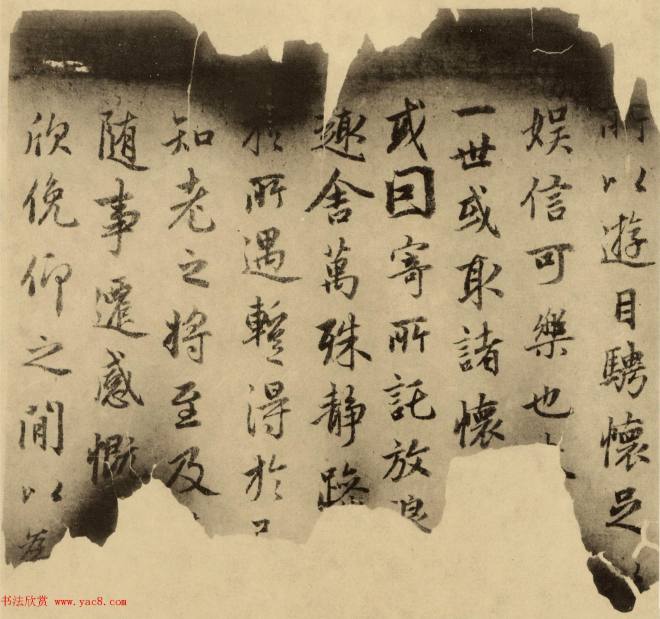 所以遊目騁懷足以
娛信可樂也夫
一世或取諸懷
或因寄所託放浪
趣舍萬殊静躁
於所遇暫得於己
知老之将至及
随事遷感慨
欣俛仰之間以為
书法欣赏 www.yac8.com